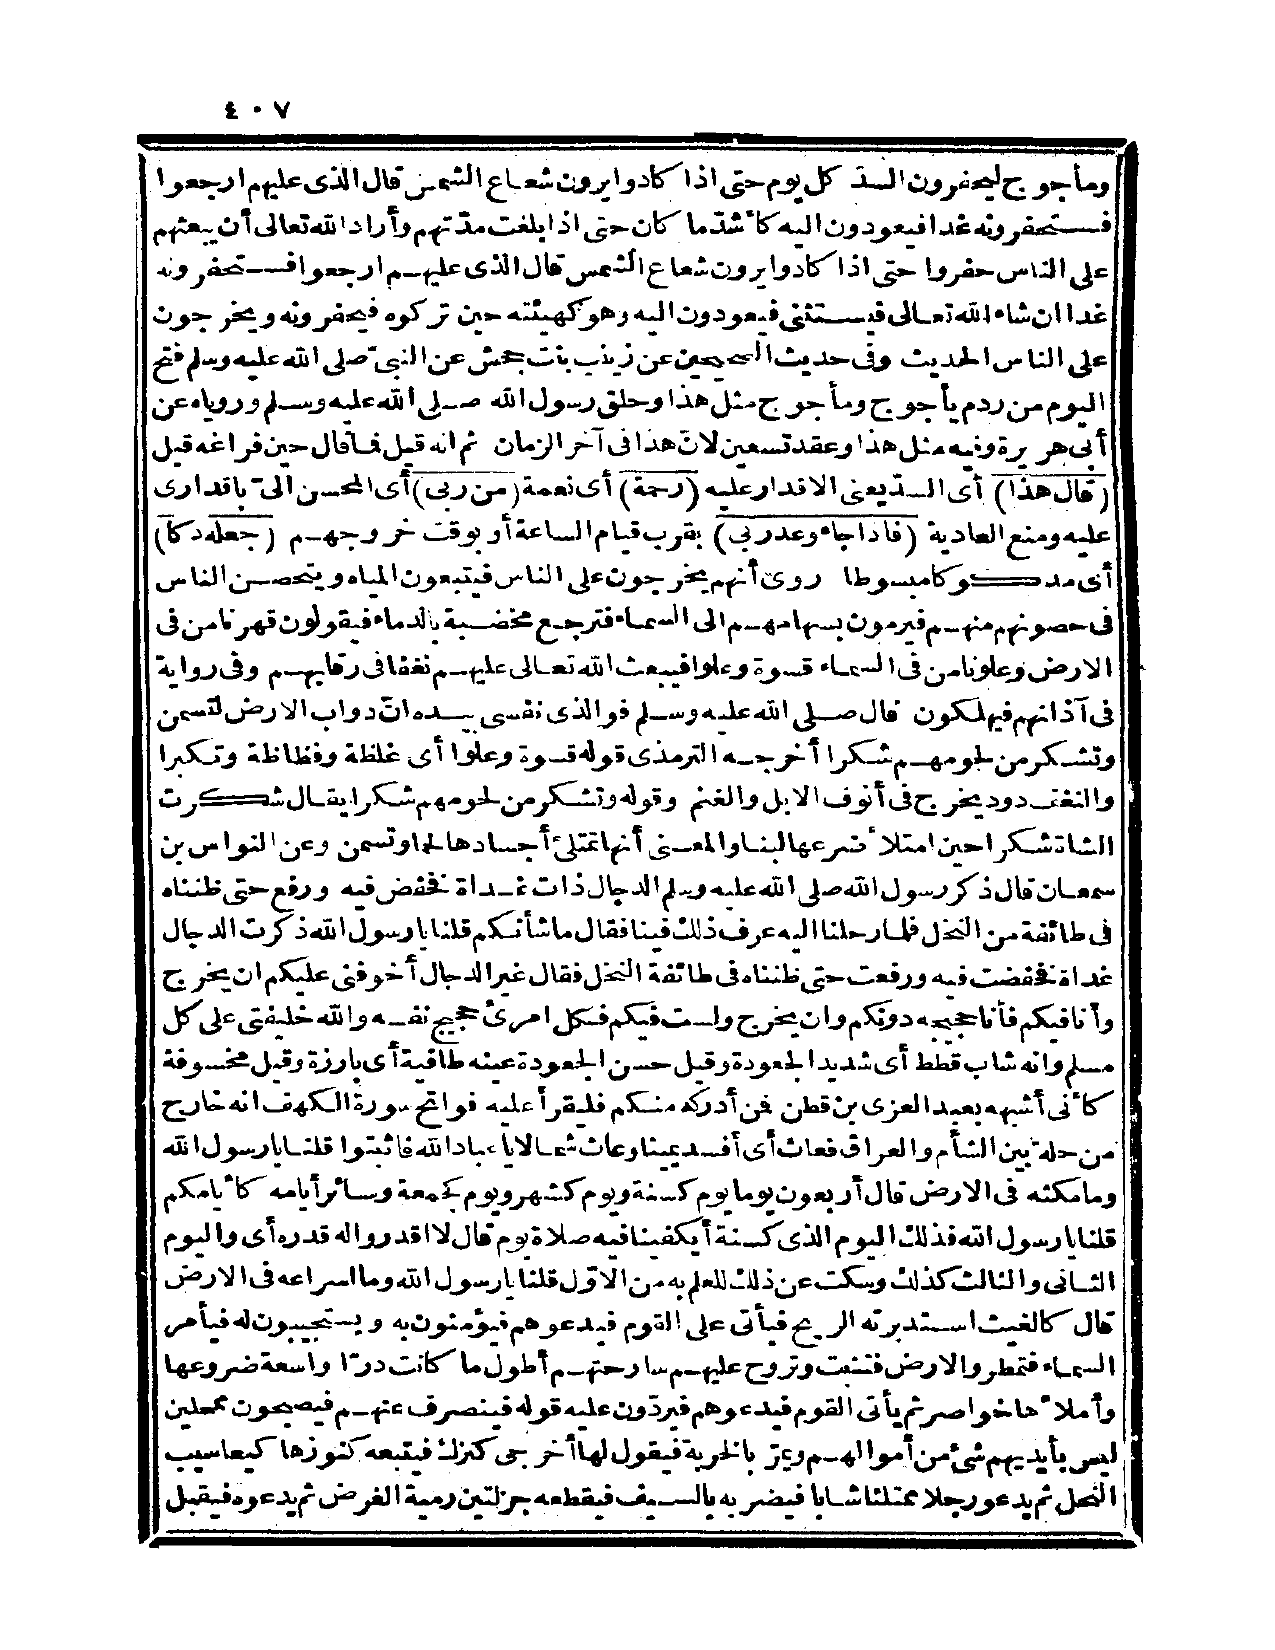 ٤٠٧
ومأجوج ليحفرون السدّ كل يوم حتى اذا كادوا يرون شعاع الشمس قال الذى عليهم ارجعوا
فستحفرونه غدا فيعودون اليه كأشدّ ما كان حتى اذا بلغت مدّتهم وأراد الله تعالى أن يبعثهم
على الناس حفروا حتى اذا كادوا يرون شعاع الشمس قال الذى عليهم ارجعوا فستحفرونه
غدا ان شاء الله تعالى فيستثنى فيعودون اليه وهو كهيئته حين تركوه فيحفرونه ويخرجون
على الناس الحديث وفى حديث الصحيحين عن زينب بنت جحش عن النبىّ صلى الله عليه وسلم فتح
اليوم من ردم يأجوج ومأجوج مثل هذا وحلق رسول الله صلى الله عليه وسلم وروياه عن
أبى هريرة وفيه مثل هذا وعقد تسعين لانّ هذا فى آخر الزمان ثم انه قيل فما قال حين فراغه قيل
(قال هذا) أى السدّ يعنى الاقدار عليه (رحمة) أى نعمة (من ربى) أى المحسن الىّ باقدارى
عليه ومنع العادية (فاذا جاء وعد ربى) بقرب قيام الساعة أو بوقت خروجهم (جعله دكا)
أى مدكوكا مبسوطا روى أنهم يخرجون على الناس فيتبعون المياه ويتحصن الناس
فى حصونهم منهم فيرمون بسهامهم الى السماء فترجع مخضبة بالدماء فيقولون قهرنا من فى
الارض وعلونا من فى السماء قسوة وعلوا فيبعث الله تعالى عليهم نغفا فى رقابهم وفى رواية
فى آذانهم فيهلكون قال صلى الله عليه وسلم فوالذى نفسى بيده انّ دواب الارض لتسمن
وتشكر من لحومهم شكرا أخرجه الترمذى قوله قسوة وعلوا أى غلظة وفظاظة وتكبرا
والنغف دود يخرج فى أنوف الابل والغنم وقوله وتشكر من لحومهم شكرا يقال شكرت
الشاة شكرا حين امتلأ ضرعها لبنا والمعنى أنها تمتلئ أجسادها لحما وتسمن وعن النواس بن
سمعان قال ذكر رسول الله صلى الله عليه وسلم الدجال ذات غداة فخفض فيه ورفع حتى ظنناه
فى طائفة من النخل فلما رحلنا اليه عرف ذلك فينا فقال ما شأنكم قلنا يا رسول الله ذكرت الدجال
غداة فخفضت فيه ورفعت حتى ظنناه فى طائفة النخل فقال غير الدجال أخوفنى عليكم ان يخرج
وأنا فيكم فأنا حجيجه دونكم وان يخرج ولست فيكم فكل امرئ حجيج نفسه والله خليفتى على كل
مسلم وانه شاب قطط أى شديد الجعودة وقيل حسن الجعودة عينه طافية أى بارزة وقيل مخسوفة
كأنى أشبهه بعبد العزى بن قطن فمن أدركه منكم فليقرأ عليه فواتح سورة الكهف انه خارج
من حلة بين الشأم والعراق فعاث أى أفسد يمينا وعاث شمالا يا عباد الله فاثبتوا قلنا يا رسول الله
وما مكثه فى الارض قال أربعون يوما يوم كسنة ويوم كشهر ويوم كجمعة وسائر أيامه كأيامكم
قلنا يا رسول الله فذلك اليوم الذى كسنة أيكفينا فيه صلاة يوم قال لا اقدروا له قدره أى واليوم
الثانى والثالث كذلك وسكت عن ذلك للعلم به من الاوّل قلنا يا رسول الله وما اسراعه فى الارض
قال كالغيث استدبرته الريح فيأتى على القوم فيدعوهم فيؤمنون به ويستجيبون له فيأمر
السماء فتمطر والارض فتنبت وتروح عليهم سارحتهم أطول ما كانت درّا واسعة ضروعها
وأملأها خواصر ثم يأتى القوم فيدعوهم فيردّون عليه قوله فينصرف عنهم فيصبحون ممحلين
ليس بأيديهم شئ من أموالهم ويمرّ بالخربة فيقول لها أخرجى كنزك فيتبعه كنوزها كيعاسيب
النحل ثم يدعو رجلا ممتلئا شابا فيضربه بالسيف فيقطعه جزلتين رمية الغرض ثم يدعوه فيقبل